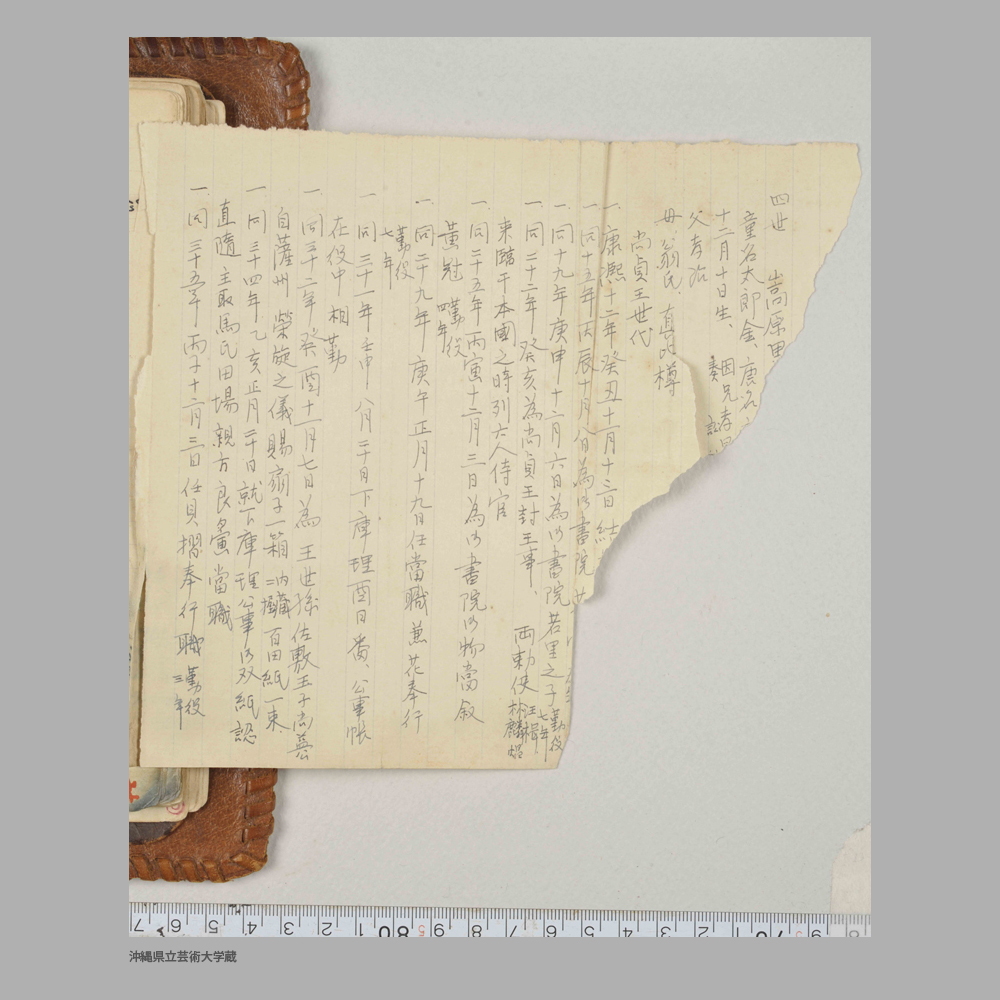 四世 嵩原里
童名太郎金、唐名
十二月十日生、因兄孝
父孝治
母、翁氏、真 樽
尚貞王世代
一、康熙十二年癸丑十一月十二日 結
一、同十五年丙辰十月八日為御書院
一、同十九年庚申十一月六日為御書院若里之子 勤役七年
一、同二十二年癸亥為尚貞王封王事、両勅使 汪楫 林麟焻
来臨于本國之時列六人侍官
一、同二十五年丙寅十二月三日為御書院御物當 叙
黄冠 勤役四年
一、同二十九年庚午正月十九日任當職兼花奉行
勤役七年
一、同三十一年壬申八月二十日下庫理酉日番、公事帳
在役中相勤
一、同三十二年癸酉十一月七日為王世孫佐敷王子尚益公
自薩州榮旋之儀賜扇子一箱 百田紙一束
一、同三十四年乙亥正月二十日就下庫理公事御双紙認
直随主取馬氏田場親方良 當職
一、同三十五年丙子十二月三日任貝摺奉行職 勤役三年
7 6 5 4 3 2 1 80 9 8 7 6 5 4 3 2 1 70 9 8
沖縄県立芸術大学蔵